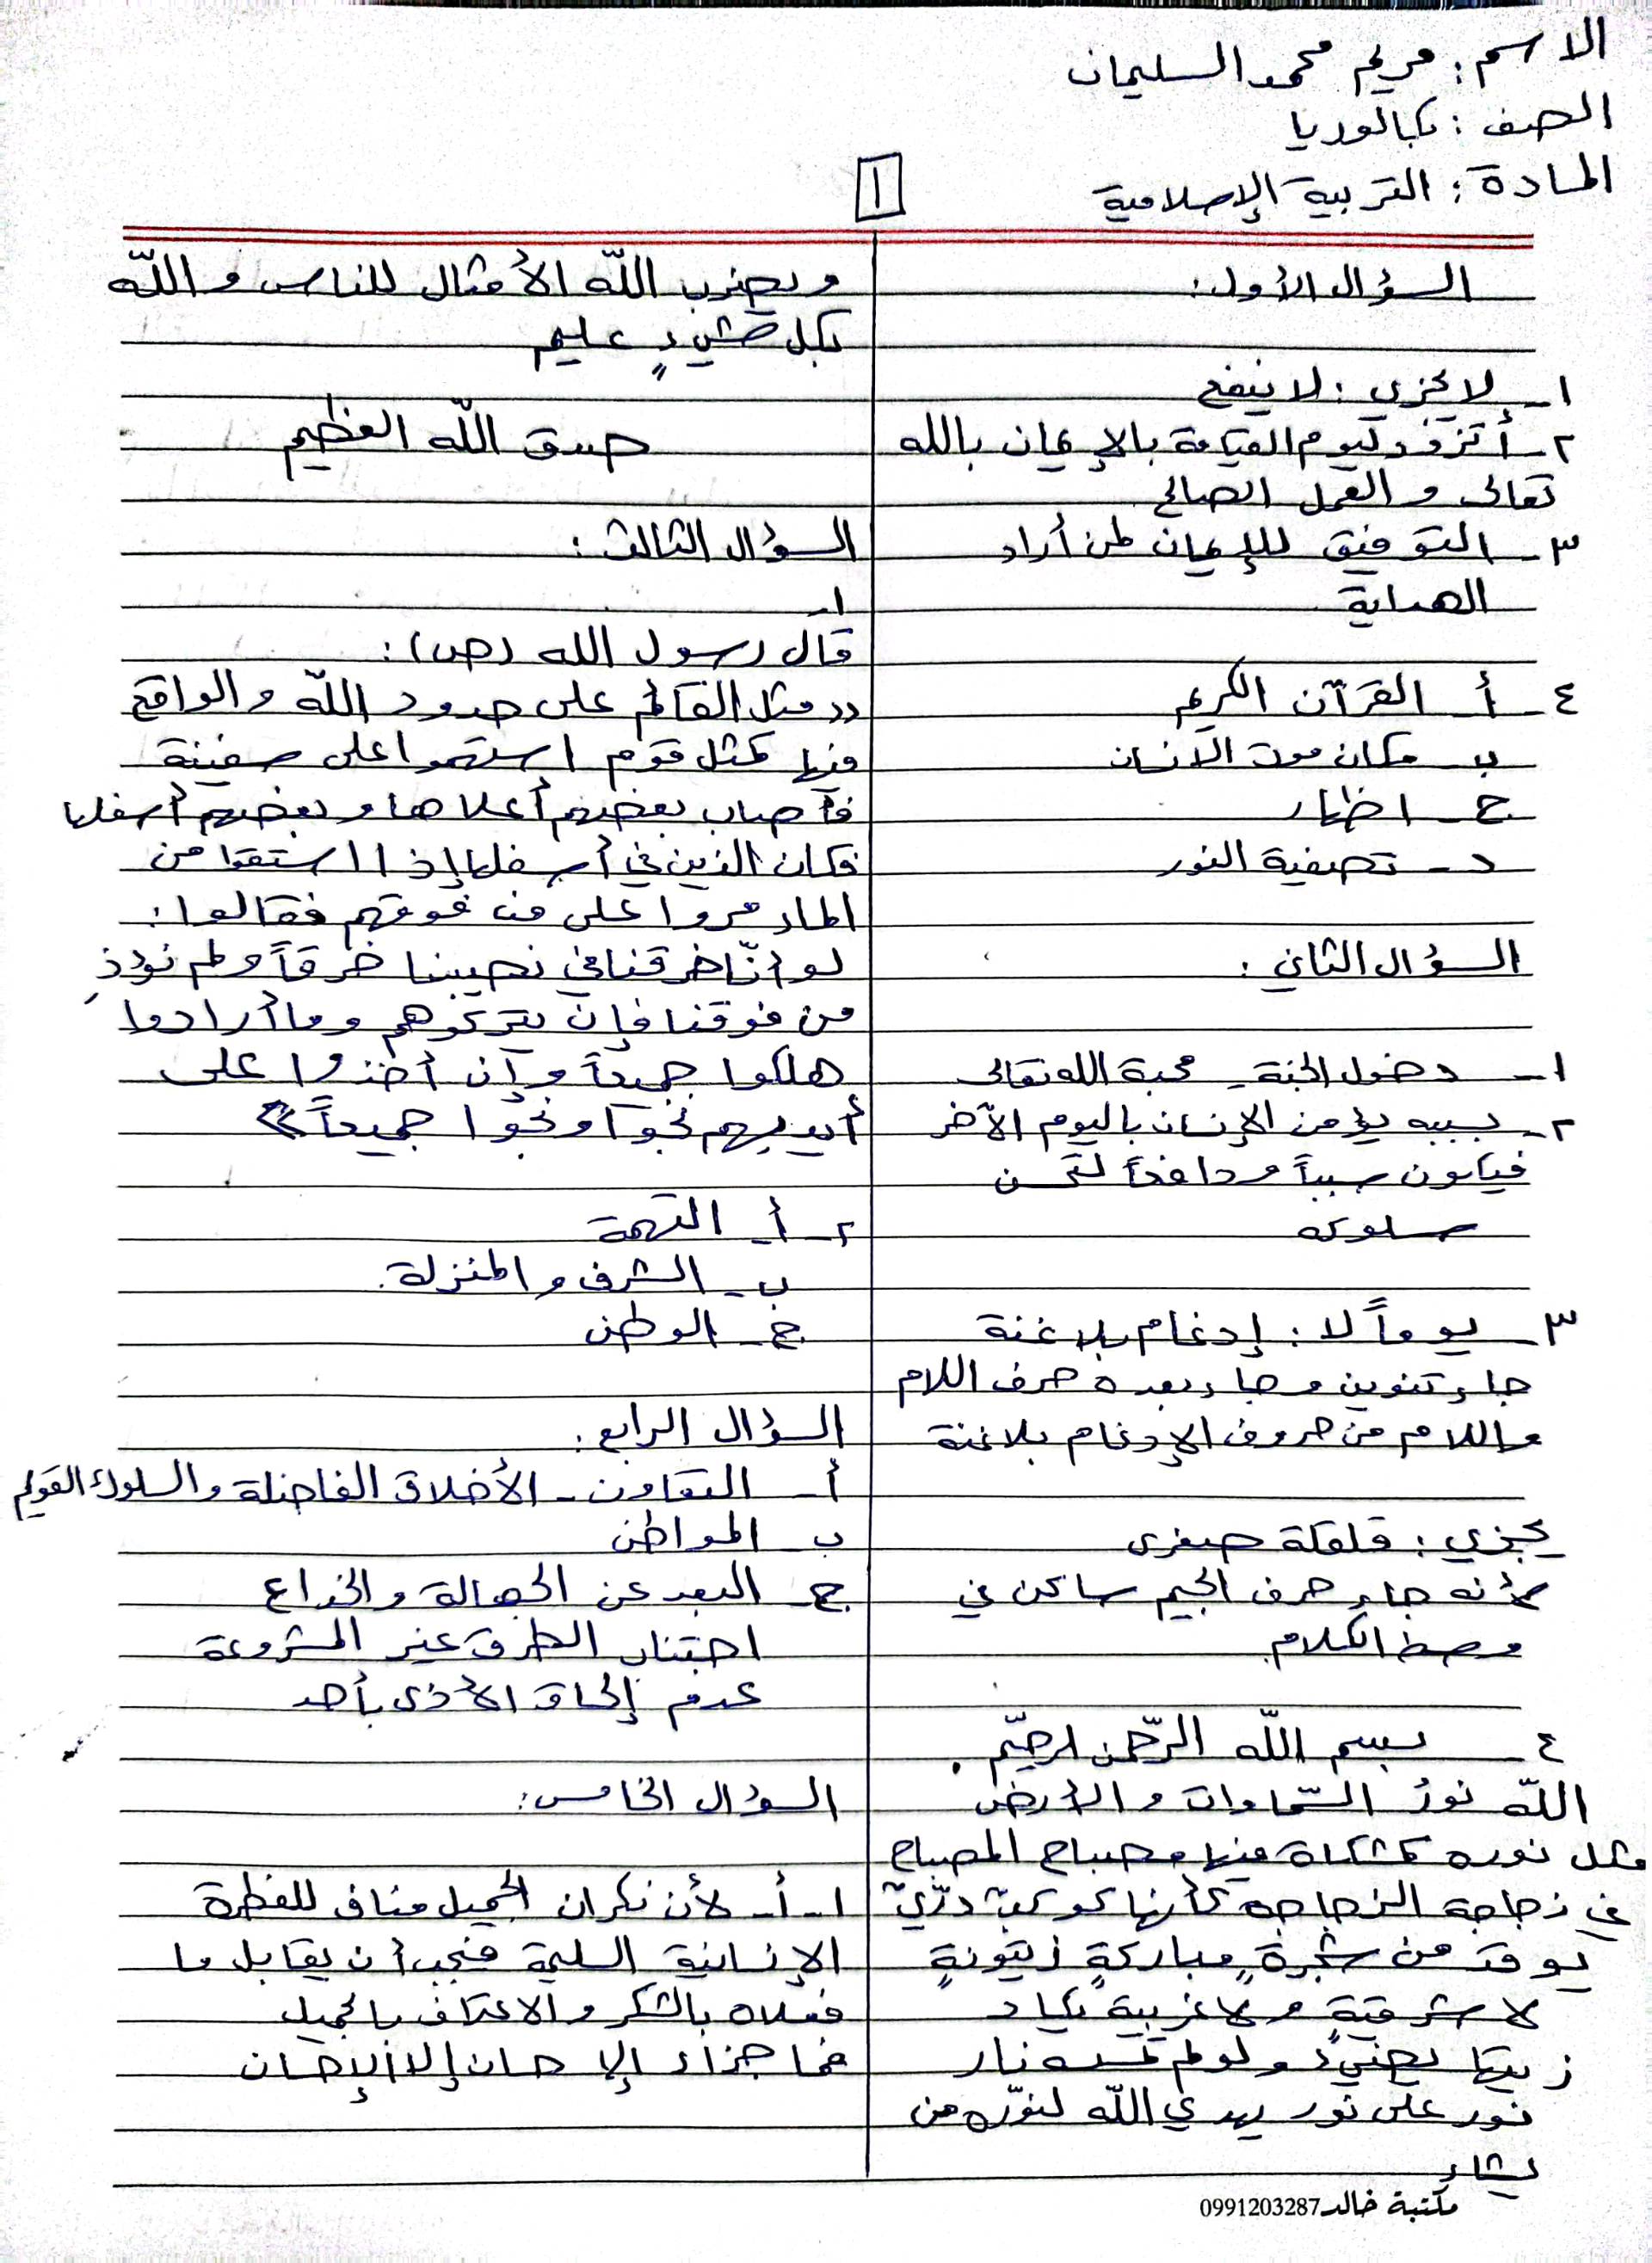 الاسم: مريم محمد السليمان
الصف: بكالوريا
المادة: التربية الإسلامية
١
السؤال الأول:
١- لا يجزي: لا ينفع
٢- أتزود ليوم القيامة بالإيمان بالله
تعالى و العمل الصالح
٣- التوفيق للإيمان لمن أراد
الهداية
٤- أ- القرآن الكريم
ب- مكان موت الانسان
ج- اظهار
د- تصفية النور
السؤال الثاني:
١- دخول الجنة - محبة الله تعالى
٢- بسببه يؤمن الإنسان باليوم الآخر
فيكون سبباً ودافعاً لتحسن
سلوكه
٣- يوماً لا: إدغام بلا غنة
جاء تنوين وجاء بعده حرف اللام
واللام من حروف الإدغام بلا غنة
يجزي: قلقلة صغرى
لأنه جاء حرف الجيم ساكن في
وسط الكلام
٤- بسم اللّه الرّحمن لرحيّم.
اللّه نورُ السّماوات و الأرض
مثل نوره كمشكاة فيها مصباح المصباح
في زجاجة الزجاجة كأنها كوكبٌ درّيٌ
يوقد من شجرةٍ مباركةٍ زيتونةٍ
لا شرقيةٍ ولا غربيةٍ يكاد
زيتها يضيءُ ولو لم تمسسه نار
نور على نور يهدي اللّه لنوره من
يشاء
و يضرب اللّه الأمثال للناس و اللّه
بكل شيءٍ عليم
صدق اللّه العظيم
السؤال الثالث:
١-
قال رسول الله (ص):
((مثل القائم على حدود اللّه و الواقع
فيها كمثل قوم استهموا على سفينة
فأصاب بعضهم أعلاها و بعضهم أسفلها
فكان الذين في أسفلها إذا استقوا من
الماء مروا على من فوقهم فقالوا:
لو أنّا خرقنا في نصيبنا خرقاً ولم نؤذِ
من فوقنا فإن يتركوهم وما أرادوا
هلكوا جميعاً وإن أخذوا على
أيديهم نجوا ونجوا جميعاً))
٢- أ- التهمة
ب- الشرف و المنزلة.
ج- الوطن
السؤال الرابع:
أ- التعاون - الأخلاق الفاضلة والسلوك القويم
ب- المواطن
ج- البعد عن الجهالة والخداع
اجتناب الطرق غير المشروعة
عدم إلحاق الأذى بأحد
السؤال الخامس:
١- أ- لأن نكران الجميل مناف للفطرة
الإنسانية السليمة فيجب أن يقابل ما
فعلاه بالشكر و الاعتراف بالجميل
فما جزاء الإحسان إلا الإحسان
مكتبة خالد 0991203287